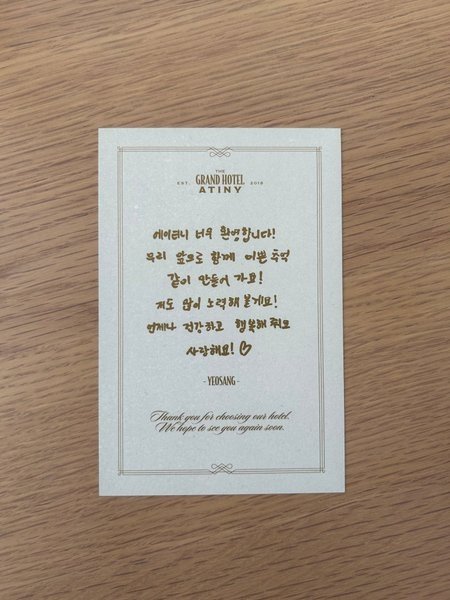 THE
GRAND HOTEL
EST. ATINY 2018
에이티니 너무 환영합니다!
우리 앞으로 함께 이쁜 추억
같이 만들어 가요!
저도 많이 노력해 볼게요!
언제나 건강하고 행복해 줘요
사랑해요! ♡
- YEOSANG -
Thank you for choosing our hotel.
We hope to see you again soon.